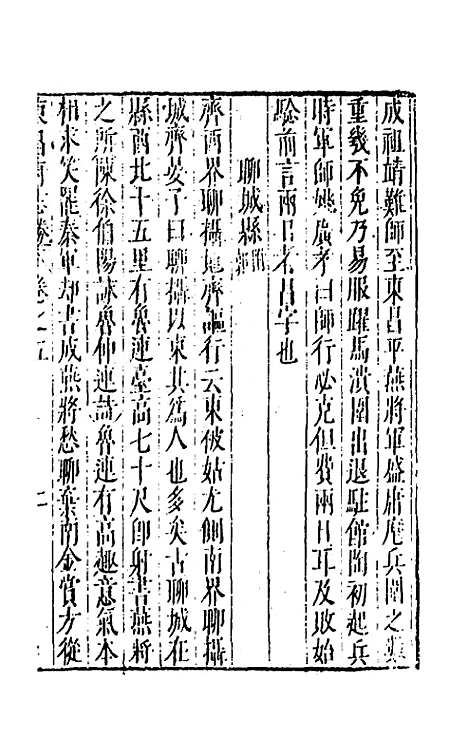 成祖靖難師至東昌平燕將軍盛庸麾兵圍之數
重幾不免乃易服躍馬潰圍出退駐館陶初起兵
時軍師姚廣孝曰師行必克但費兩日耳及敗始
驗前言兩日者昌字也
聊城縣
齊西界聊攝尾齊謳行云東被姑尤側南界聊攝
城齊晏子曰聊攝以東其為人也多矣古聊城在
縣西北十五里有魯連臺高七十尺即射書燕將
之所陳徐伯陽詠魯仲連詩魯連有高趣意氣本
相求笑罷秦軍却書成燕將愁聊棄南金賞方從
卷之五